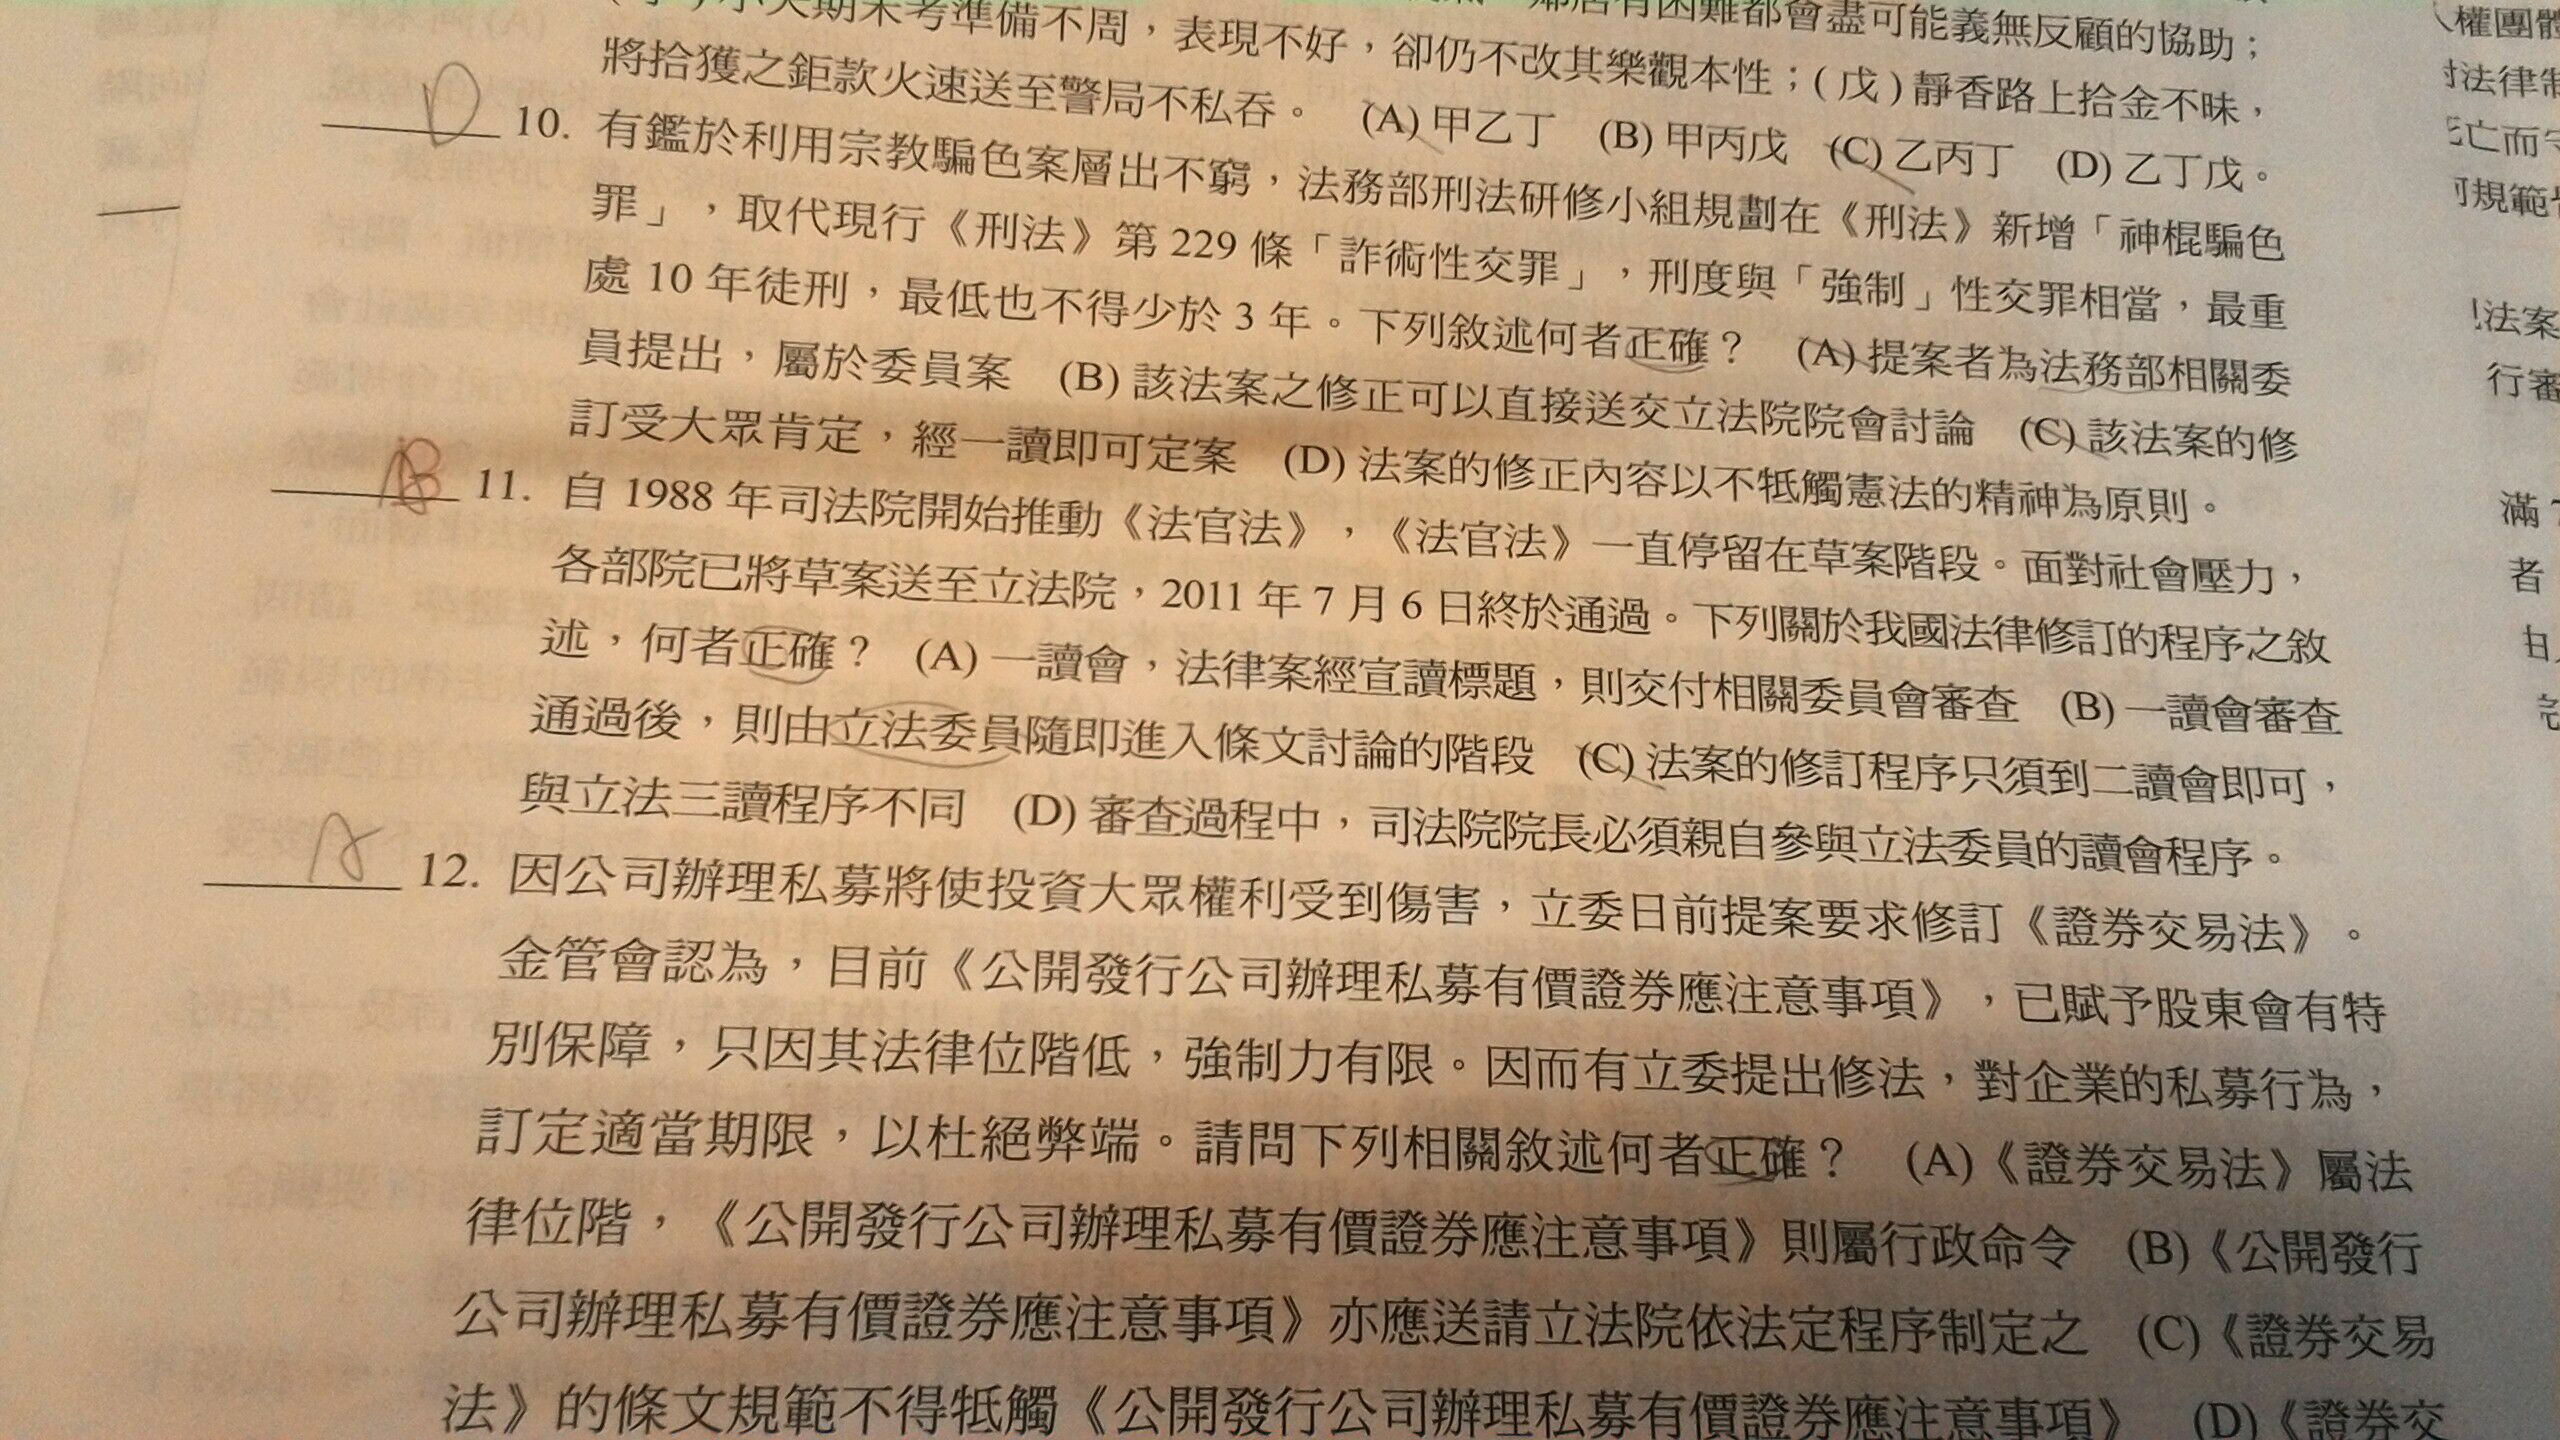 小夫期末考準備不周，表現不好，卻仍不改其樂觀本性；(戊)靜香路上拾金不昧，
將拾獲之鉅款火速送至警局不私吞。 (A) 甲乙丁 (B) 甲丙戊 (C) 乙丙丁 (D) 乙丁戊。
D 10. 有鑑於利用宗教騙色案層出不窮，法務部刑法研修小組規劃在《刑法》新增「神棍騙色
罪」，取代現行《刑法》第 229 條「詐術性交罪」，刑度與「強制」性交罪相當，最重
處 10 年徒刑，最低也不得少於 3 年。下列敘述何者正確？ (A) 提案者為法務部相關委
員提出，屬於委員案 (B) 該法案之修正可以直接送交立法院院會討論 (C) 該法案的修
訂受大眾肯定，經一讀即可定案 (D) 法案的修正內容以不牴觸憲法的精神為原則。
B 11. 自 1988 年司法院開始推動《法官法》，《法官法》一直停留在草案階段。面對社會壓力，
各部院已將草案送至立法院，2011 年 7 月 6 日終於通過。下列關於我國法律修訂的程序之敘
述，何者正確？ (A) 一讀會，法律案經宣讀標題，則交付相關委員會審查 (B) 一讀會審查
通過後，則由立法委員隨即進入條文討論的階段 (C) 法案的修訂程序只須到二讀會即可，
與立法三讀程序不同 (D) 審查過程中，司法院院長必須親自參與立法委員的讀會程序。
A 12. 因公司辦理私募將使投資大眾權利受到傷害，立委日前提案要求修訂《證券交易法》。
金管會認為，目前《公開發行公司辦理私募有價證券應注意事項》，已賦予股東會有特
別保障，只因其法律位階低，強制力有限。因而有立委提出修法，對企業的私募行為，
訂定適當期限，以杜絕弊端。請問下列相關敘述何者正確？ (A)《證券交易法》屬法
律位階，《公開發行公司辦理私募有價證券應注意事項》則屬行政命令 (B)《公開發行
公司辦理私募有價證券應注意事項》亦應送請立法院依法定程序制定之 (C)《證券交易
法》的條文規範不得牴觸《公開發行公司辦理私募有價證券應注意事項》 (D)《證券交
權團體
法律制
亡而
規範
法案
行審
滿 7
者